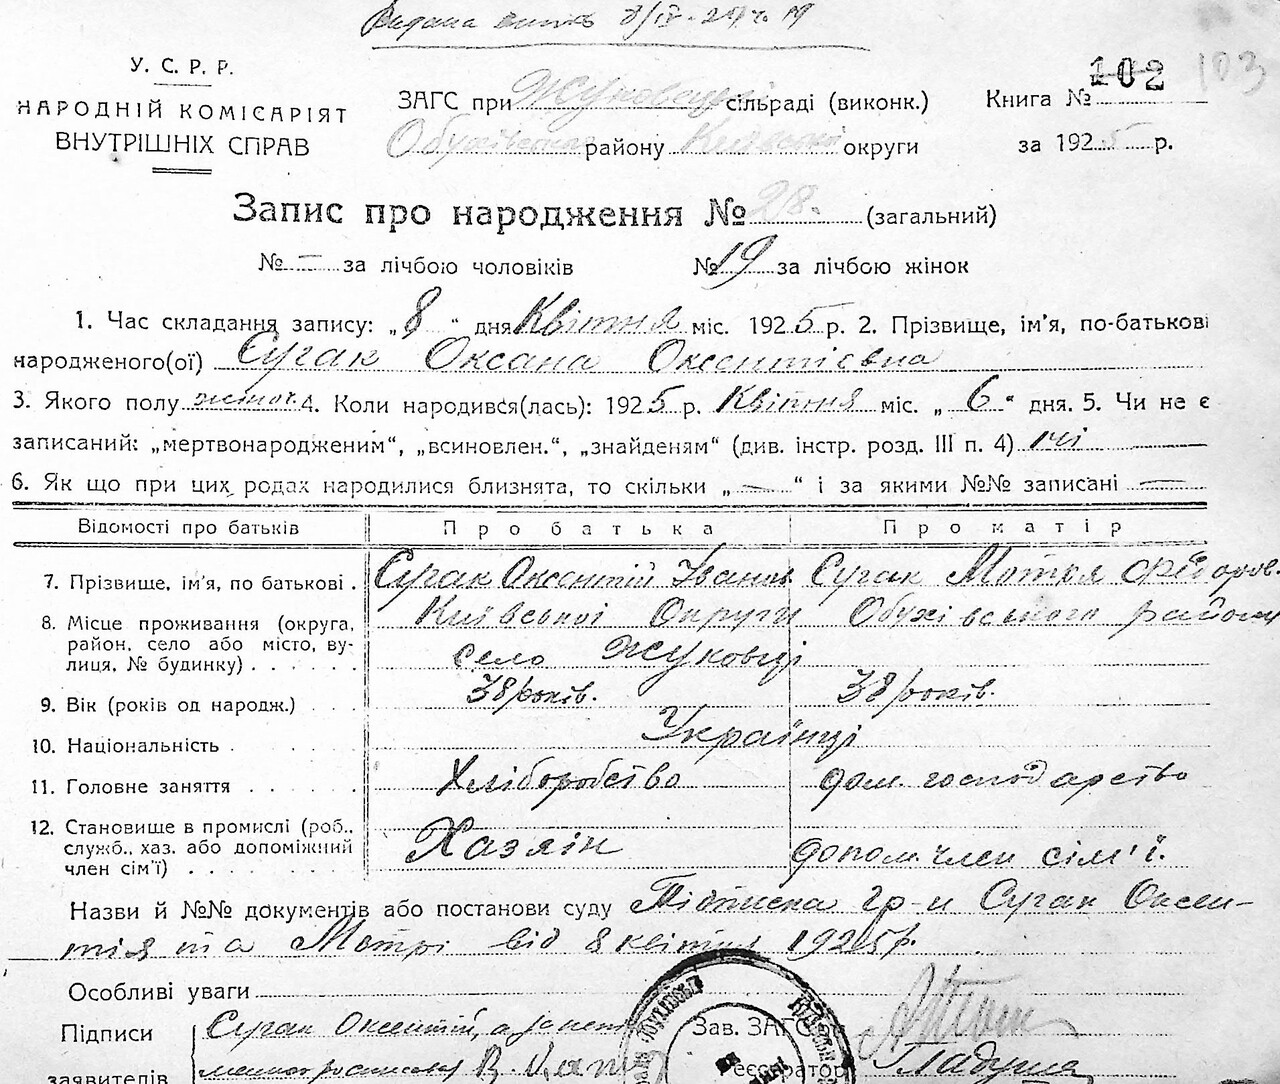 Видана 8/IV-25 ч. 19
У. С. Р. Р.
НАРОДНІЙ КОМІСАРІЯТ
ВНУТРІШНІХ СПРАВ
ЗАГС при Жуковецькі сільраді (виконк.)
Обухівського району Київської округи
Книга № 102 103
за 1925 р.
Запис про народження № 28. (загальний)
№ — за лічбою чоловіків № 19 за лічбою жінок
1. Час складання запису: „8" дня Квітня міс. 1925 р. 2. Прізвище, ім'я, по-батькові
народженого(ої) Сугак Оксана Оксентієвна
3. Якого полу жіноч. 4. Коли народився(лась): 1925 р. Квітня міс. „6" дня. 5. Чи не є
записаний: „мертвонародженим", „всиновлен.", „знайденям" (див. інстр. розд. III п. 4) ні
6. Як що при цих родах народилися близнята, то скільки „—" і за якими №№ записані —
Відомості про батьків Про батька Про матір
7. Прізвище, ім'я, по батькові . Сугак Оксентій Іванов. Сугак Мотря Федоров.
8. Місце проживання (округа, Київської Округи Обухівського району
район, село або місто, ву- село Жуковці
лиця, № будинку) . . . . . .
9. Вік (років од народж.) . . . 38 років. 38 років.
10. Національність . . . . . . Українці
11. Головне заняття . . . . . . Хліборобство дом. господарство
12. Становище в промислі (роб.,
служб., хаз. або допоміжний Хазяїн допом. член сім'ї.
член сім'ї) . . . . . . . .
Назви й №№ документів або постанови суду Підписка гр-н Сугак Оксен-
тія та Мотрі від 8 квітня 1925 р.
Особливі уваги
Підписи Сугак Оксентій, а за Зав. ЗАГС'ом
заявителів Реєстратор